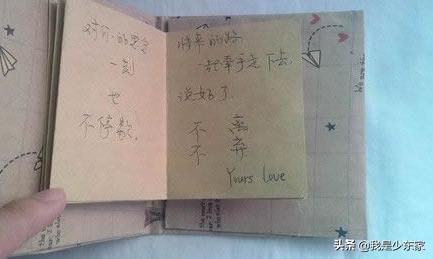 对你的思念
一刻
也
不停歇.
将来的路
一起牵手走下去.
说好了.
不 离
不 弃
Yours love
头条 @我是少东家